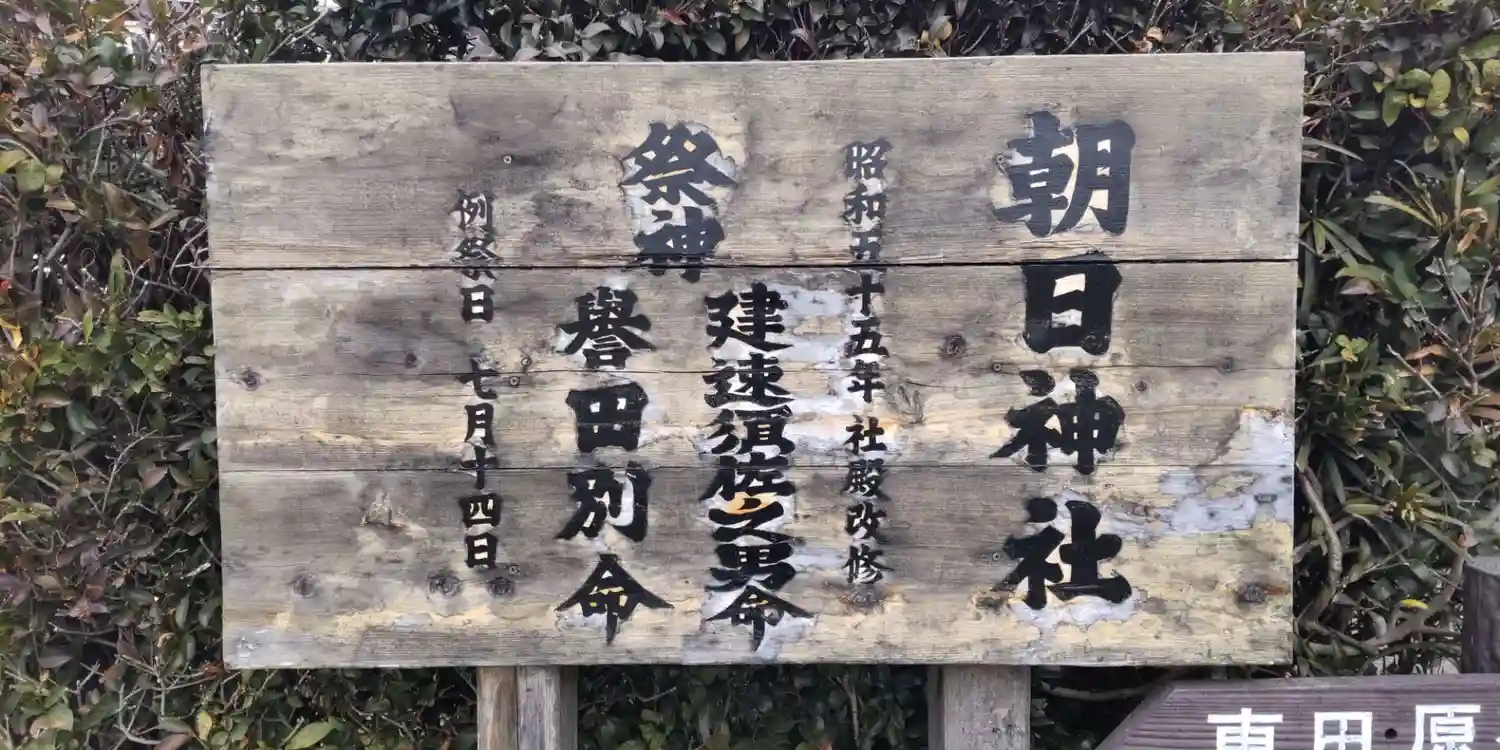 朝日神社
昭和五十五年 社殿改修
祭神
建速須佐之男命
譽田別命
例祭日 七月十四日
東田原